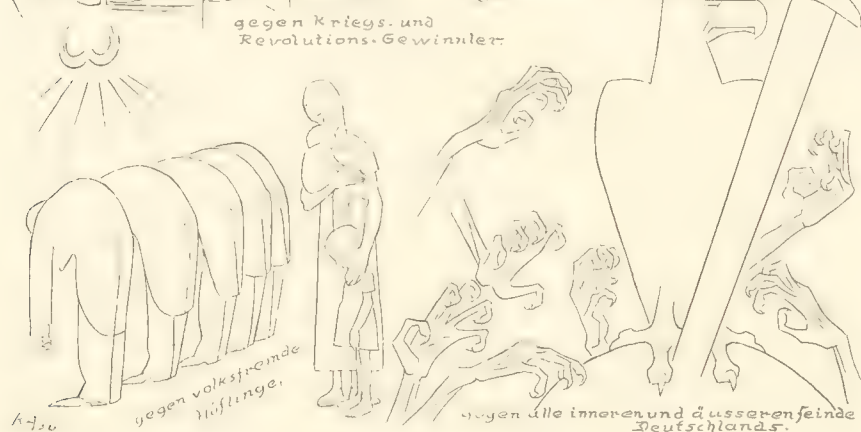 gegen Kriegs- und
Revolutions-Gewinnler.
gegen volksfremde
Höflinge,
gegen alle inneren und äusseren feinde
Deutschlands.